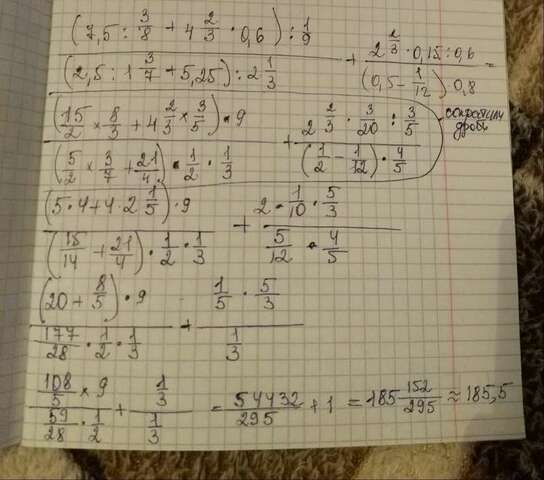 (7,5 : 3/8 + 4 2/3 · 0,6) : 1/9 / (2,5 : 1 3/7 + 5,25) : 2 1/3 + 2 2/3 · 0,15 : 0,6 / (0,5 - 1/12) · 0,8 =
(15/2 × 8/3 + 4 2/3 × 3/5) · 9 / (5/2 × 3/7 + 21/4) · 1/2 · 1/3 + 2 2/3 · 3/20 : 3/5 / (1/2 - 1/12) · 4/5 сократили дроби
(5 · 4 + 4 · 2 1/5) · 9 / (15/14 + 21/4) · 1/2 · 1/3 + 2 · 1/10 · 5/3 / 5/12 · 4/5
(20 + 8/5) · 9 / 177/28 · 1/2 · 1/3 + 1/5 · 5/3 / 1/3
108/5 × 9 / 59/28 · 1/2 + 1/3 / 1/3 = 54432/295 + 1 = 185 152/295 ≈ 185,5